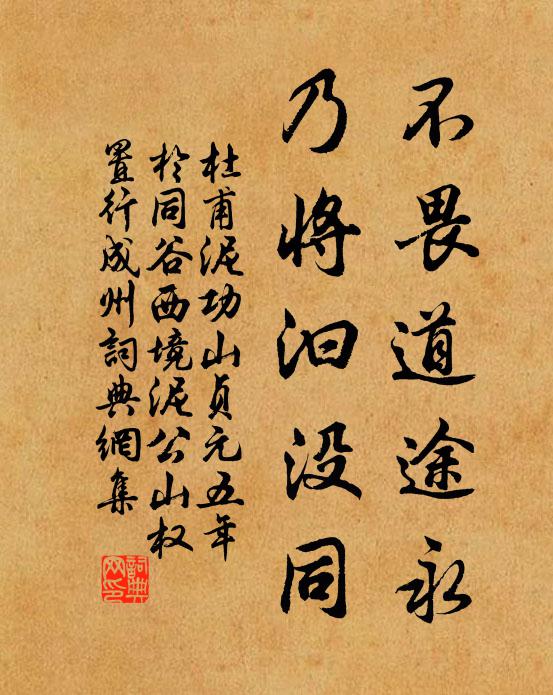 不畏道途永
乃將汩没同
杜甫泥功山貞元五年
於同谷西境泥公山权
置行成州詞典網集
詞典
网印